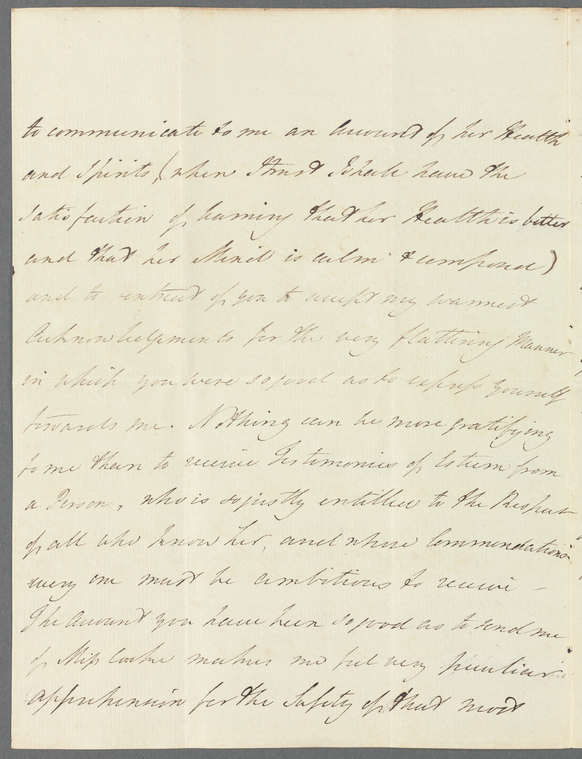 to communicate to me an account of her Health
and Spirits, (when I trust I shall have the
satisfaction of learning that her Health is better
and that her Mind is calm & composed)
and to entreat of you to accept my warmest
Acknowledgements for the very flattering Manner
in which you were so good as to express yourself
towards me. Nothing can be more gratifying
to me than to receive Testimonies of Esteem from
a Person, who is so justly entitled to the Respect
of all who know her, and whose Commendations
every one must be ambitious to receive –
The Account you have been so good as to send me
of Miss Cooke makes me feel very peculiar
apprehension for the Safety of that most